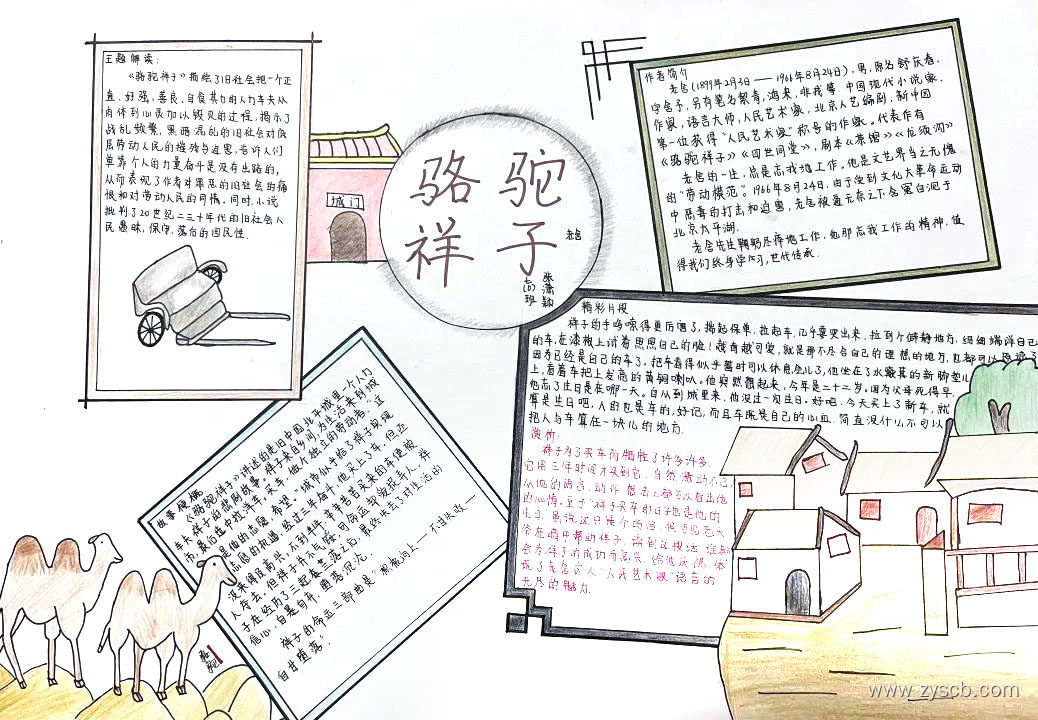 主题解读:
《骆驼祥子》描绘了旧社会把一个正
直、好强、善良、自食其力的人力车夫从
肉体到心灵加以毁灭的过程,揭示了
战乱频繁、黑暗混乱的旧社会对底
层劳动人民的摧残与迫害,告诉人们
单靠个人的力量奋斗是没有出路的,
从而表现了作者对罪恶的旧社会的痛
恨和对劳动人民的同情。同时,小说
批判了20世纪二三十年代的旧社会人
民愚昧,保守,落后的国民性.
城门
骆驼
祥子
老舍
张潇颖
(6)班
作者简介
老舍(1899年2月3日——1966年8月24日),男,原名舒庆春,
字舍予,另有笔名絜青,鸿来,非我等.中国现代小说家,
作家,语言大师,人民艺术家,北京人艺编剧,新中国
第一位获得"人民艺术家"称号的作家。代表作有
《骆驼祥子》《四世同堂》,剧本《茶馆》《龙须沟》
老舍的一生,总是忘我地工作。他是文艺界当之无愧
的"劳动模范"。1966年8月24日,由于受到文化大革命运动
中恶毒的打击和迫害,老舍被逼无奈之下含冤自沉于
北京太平湖.
老舍先生鞠躬尽瘁地工作,他那忘我工作的精神,值
得我们终身学习,世代传承.
精彩片段
祥子的手哆嗦得更厉害了,揣起保单,拉起车,几乎要哭出来.拉到个僻静地方,细细端详自己
的车,在漆板上试着照照自己的脸!越看越可爱,就是那不尽合自己的理想的地方,也都可以原谅了
因为已经是自己的车了。把车看得似乎暂时可以休息会儿了,他坐在了水簸箕的新脚垫儿
上,看着车把上发亮的黄铜喇叭。他突然想起来,今年是二十二岁。因为父母死得早,
他忘了生日是在哪一天。自从到城里来,他没过一次生日。好吧,今天买上了新车,就
算是生日吧,人的也是车的,好记,而且车既是自己的心血,简直没什么不可以
把人与车算在一块儿的地方.
赏析:
祥子为了买车而牺牲了许多许多,
它用三年时间才买到它,当然激动不已,
从他的语言,动作
的心情。至于祥子买车的日子也是他的
无尽的魅力.
故事梗概
《骆驼祥子》讲述的是旧中国北平城里一个人力
车夫祥子的悲剧故事。祥子来自乡间,为生活来到城
市,最后选中拉洋车,买车,做个独立的劳动者,这
是他的志愿,希望。城市似乎给了祥子实现
志愿的机遇,经过三年奋斗,他买上了车,但还
没来得及高兴,不到半年,辛辛苦苦买来的车便被
人夺去,但祥子并不气馁,
子在经历了三起三落之后,最终失去了对生活的
信心,自暴自弃,堕落沉沦.
祥子的命运三部曲是"积极向上——不甘失败——
自甘堕落".
骆驼
www.zyscb.com